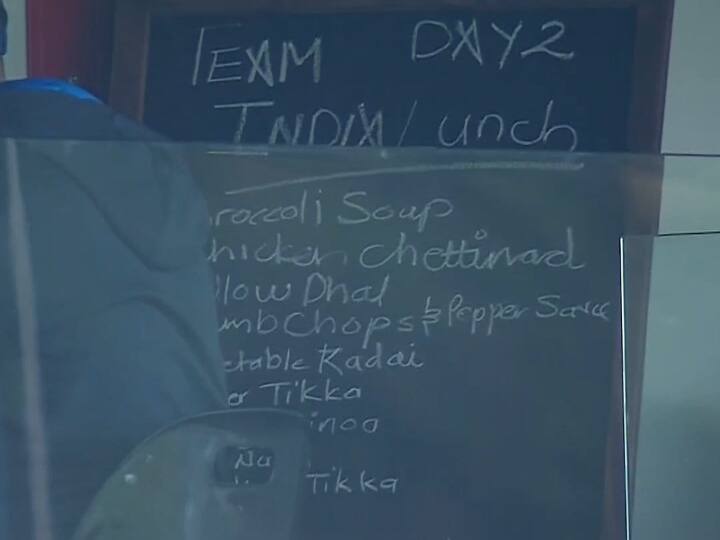 TEAM DAY 2
INDIA Lunch
roccoli Soup
hicken Chettinad
llow Dhal
mb Chops & Pepper Sauce
etable Kadai
er Tikka
inoa
Na
Tikka